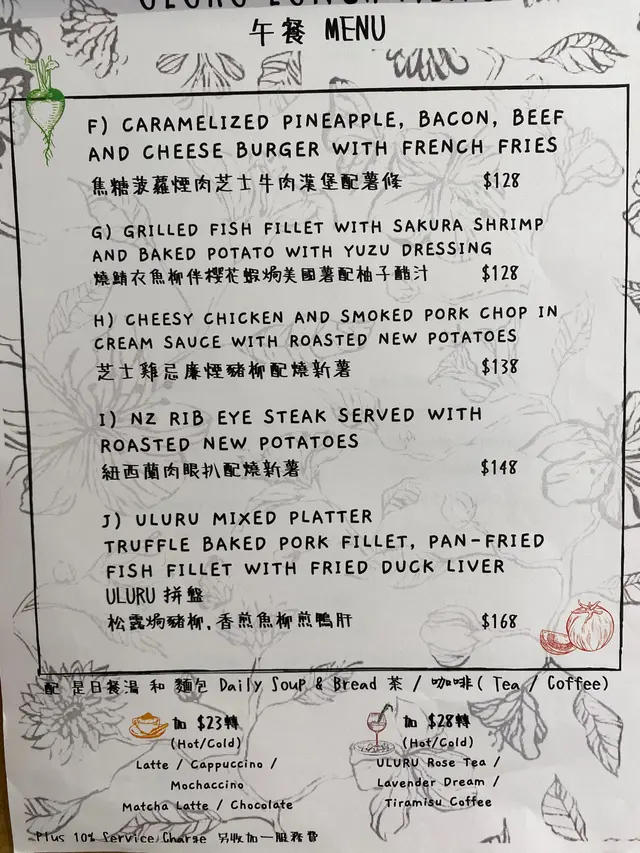 午餐 MENU
F) CARAMELIZED PINEAPPLE, BACON, BEEF
AND CHEESE BURGER WITH FRENCH FRIES
焦糖菠蘿煙肉芝士牛肉漢堡配薯條 $128
G) GRILLED FISH FILLET WITH SAKURA SHRIMP
AND BAKED POTATO WITH YUZU DRESSING
燒鯖衣魚柳伴櫻花蝦焗美國薯配柚子醋汁 $128
H) CHEESY CHICKEN AND SMOKED PORK CHOP IN
CREAM SAUCE WITH ROASTED NEW POTATOES
芝士雞忌廉煙豬柳配燒新薯 $138
I) NZ RIB EYE STEAK SERVED WITH
ROASTED NEW POTATOES
紐西蘭肉眼扒配燒新薯 $148
J) ULURU MIXED PLATTER
TRUFFLE BAKED PORK FILLET, PAN-FRIED
FISH FILLET WITH FRIED DUCK LIVER
ULURU 拼盤
松露焗豬柳,香煎魚柳煎鴨肝 $168
配 是日餐湯 和 麵包 Daily Soup & Bread 茶 / 咖啡( Tea / Coffee)
加 $23轉
(Hot/Cold)
Latte / Cappuccino /
Mochaccino
Matcha Latte / Chocolate
加 $28轉
(Hot/Cold)
ULURU Rose Tea /
Lavender Dream /
Tiramisu Coffee
Plus 10% Service Charge 另收加一服務費